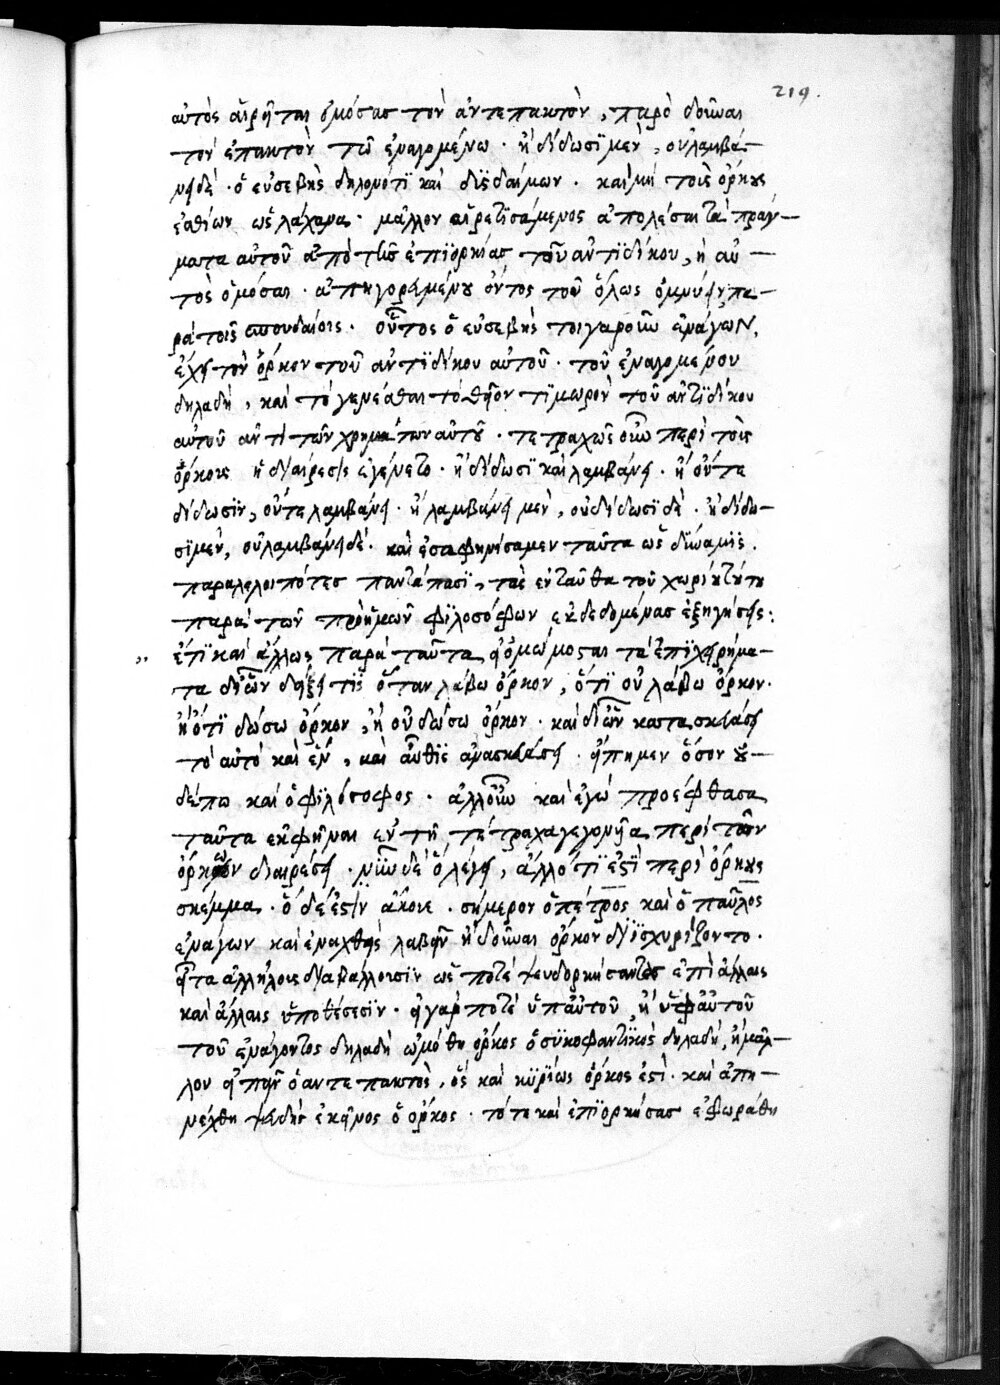 219.
αὐτὸς αἱρῆται ὀμόσας τὸν ἀντεπακτὸν, παρὸ δοῦναι
τὸν ἐπακτὸν τῶ ἐναγομένω. ἢ δίδωσι μὲν, οὐ λαμβά-
νει δέ. ὁ εὐσεβὴς δηλονότι καὶ δεισιδαίμων. καὶ μὴ τοὺς ὅρκους
ἐσθίων ὡς λάχανα. μᾶλλον αἱρετισάμενος ἀπολέσαι τὰ πράγ-
ματα αὐτοῦ ἀπὸ τῆς ἐπιορκίας τοῦ ἀντιδίκου, ἢ αὐ-
τὸς ὀμόσαι. ἀπηγορευμένου ὄντος τοῦ ὅλως ὀμνύειν πα-
ρὰ τοῖς σπουδαίοις. οὗτος ὁ εὐσεβὴς τοιγαροῦν ἐνάγων,
ἔχει τὸν ὅρκον τοῦ ἀντιδίκου αὐτοῦ. τοῦ ἐναγομένου
δηλαδή, καὶ τὸ γενέσθαι τὸ θεῖον τιμωρὸν τοῦ ἀντιδίκου
αὐτοῦ ἀντὶ τῶν χρημάτων αὐτοῦ. τετραχῶς οὖν περὶ τοὺς
ὅρκους ἡ διαίρεσις ἐγένετο. ἢ δίδωσι καὶ λαμβάνει. ἢ οὔτε
δίδωσιν, οὔτε λαμβάνει. ἢ λαμβάνει μὲν, οὐ δίδωσι δέ. ἢ δίδω-
σι μὲν, οὐ λαμβάνει δέ. καὶ ἐσαφηνίσαμεν ταῦτα ὡς δύναμις.
παραλελοιπότες παντάπασι, τὰς ἐνταῦθα τοῦ χωρίου τούτου
παρὰ τῶν πρὸ ἡμῶν φιλοσόφων ἐκδεδομένας ἐξηγήσεις:
,, ἔτι καὶ ἄλλως παρὰ ταῦτα εἰ ὀμώμοσαι τὰ ἐπιχειρήμα-
τα δι' ὧν δείξει τις ὅταν λάβω ὅρκον, ὅτι οὐ λάβω ὅρκον.
ἢ ὅτι δώσω ὅρκον, ἢ οὐ δώσω ὅρκον. καὶ δι' ὧν κατασκευάσει
τὸ αὐτὸ καὶ ἓν, καὶ αὖθις ἀνασκευάσει. εἴπημεν ὅσον οὐ-
δέπω καὶ ὁ φιλόσοφος. ἀλλ' οὖν καὶ ἐγὼ προσέφθασα
ταῦτα ἐκφῆναι ἐν τῆ τέτραχα γεγονυῖα περὶ τῶν
ὅρκων διαιρέσει. νῦν δὲ ὃ λέγει, ἄλλό τι ἐστὶ περὶ ὅρκους
σκέμμα. ὃ δέ ἐστιν ἄκουε. σήμερον ὁ πέτρος καὶ ὁ παῦλος
ἐνάγων καὶ ἐναχθεὶς λαβεῖν ἢ δοῦναι ὅρκον διισχυρίζοντο.
εἶτα ἀλλήλους διαβάλλουσιν ὡς ποτὲ ψευδορκήσαντες ἐπὶ ἄλλαις
καὶ ἄλλαις ὑποθέσεσιν. εἰ γάρ ποτε ὑπ' αὐτοῦ, ἢ ὑφ' αὑτοῦ
τοῦ ἐνάγοντος δηλαδὴ ὠμόθη ὅρκος ὁ συκοφαντικὸς δηλαδή, ἢ μᾶλ-
λον εἰπεῖν ὁ ἀντεπακτὸς, ὃς καὶ κυρίως ὅρκος ἐστὶ. καὶ ἀπη-
νέχθη ψευδὴς ἐκεῖνος ὁ ὅρκος. τότε καὶ ἐπιορκήσας ἐφωράθη